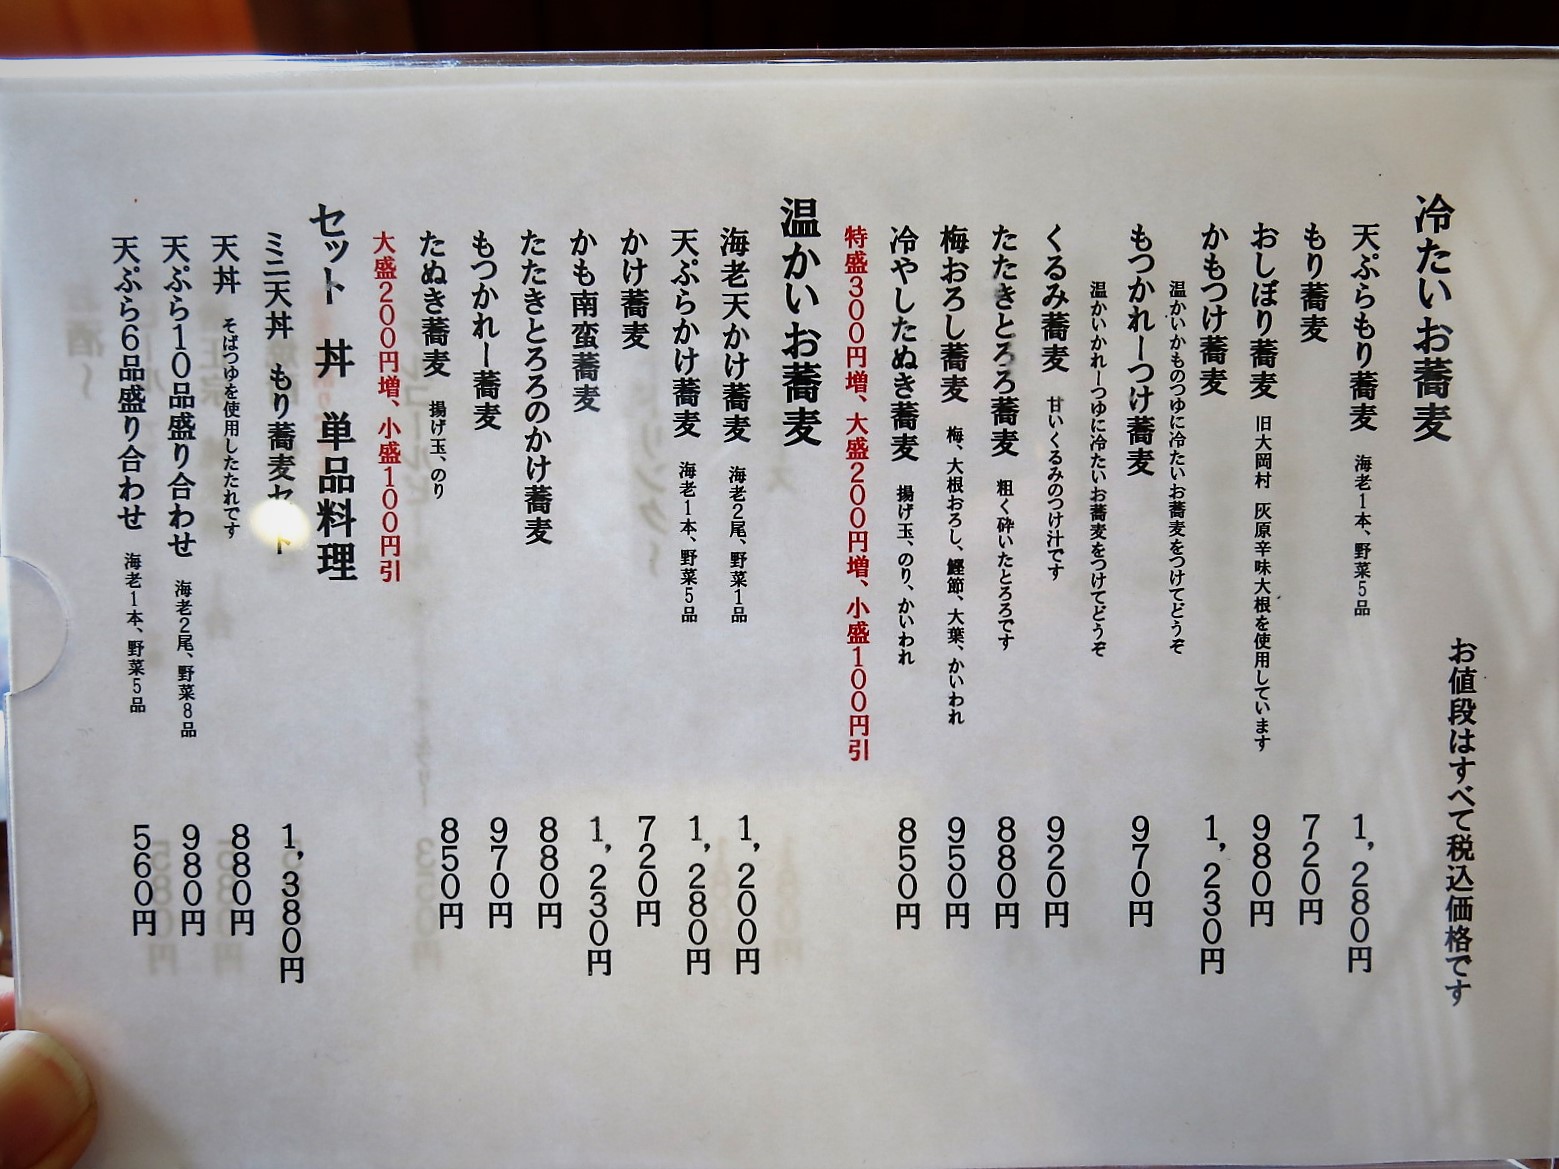 冷たいお蕎麦
お値段はすべて税込価格です
天ぷらもり蕎麦 海老1本、野菜5品 1,280円
もり蕎麦 720円
おしぼり蕎麦 旧大岡村 灰原辛味大根を使用しています 980円
かもつけ蕎麦 1,230円
温かいかものつゆに冷たいお蕎麦をつけてどうぞ
もつかれーつけ蕎麦 970円
温かいかれーつゆに冷たいお蕎麦をつけてどうぞ
くるみ蕎麦 甘いくるみのつけ汁です 920円
たたきとろろ蕎麦 粗く砕いたとろろです 880円
梅おろし蕎麦 梅、大根おろし、鰹節、大葉、かいわれ 950円
冷やしたぬき蕎麦 揚げ玉、のり、かいわれ 850円
特盛300円増、大盛200円増、小盛100円引
温かいお蕎麦
海老天かけ蕎麦 海老2尾、野菜1品 1,200円
天ぷらかけ蕎麦 海老1本、野菜5品 1,280円
かけ蕎麦 720円
かも南蛮蕎麦 1,230円
たたきとろろのかけ蕎麦 880円
もつかれー蕎麦 970円
たぬき蕎麦 揚げ玉、のり 850円
大盛200円増、小盛100円引
セット 丼 単品料理
ミニ天丼 もり蕎麦セット 1,380円
天丼 そばつゆを使用したたれです 880円
天ぷら10品盛り合わせ 海老2尾、野菜8品 980円
天ぷら6品盛り合わせ 海老1本、野菜5品 560円